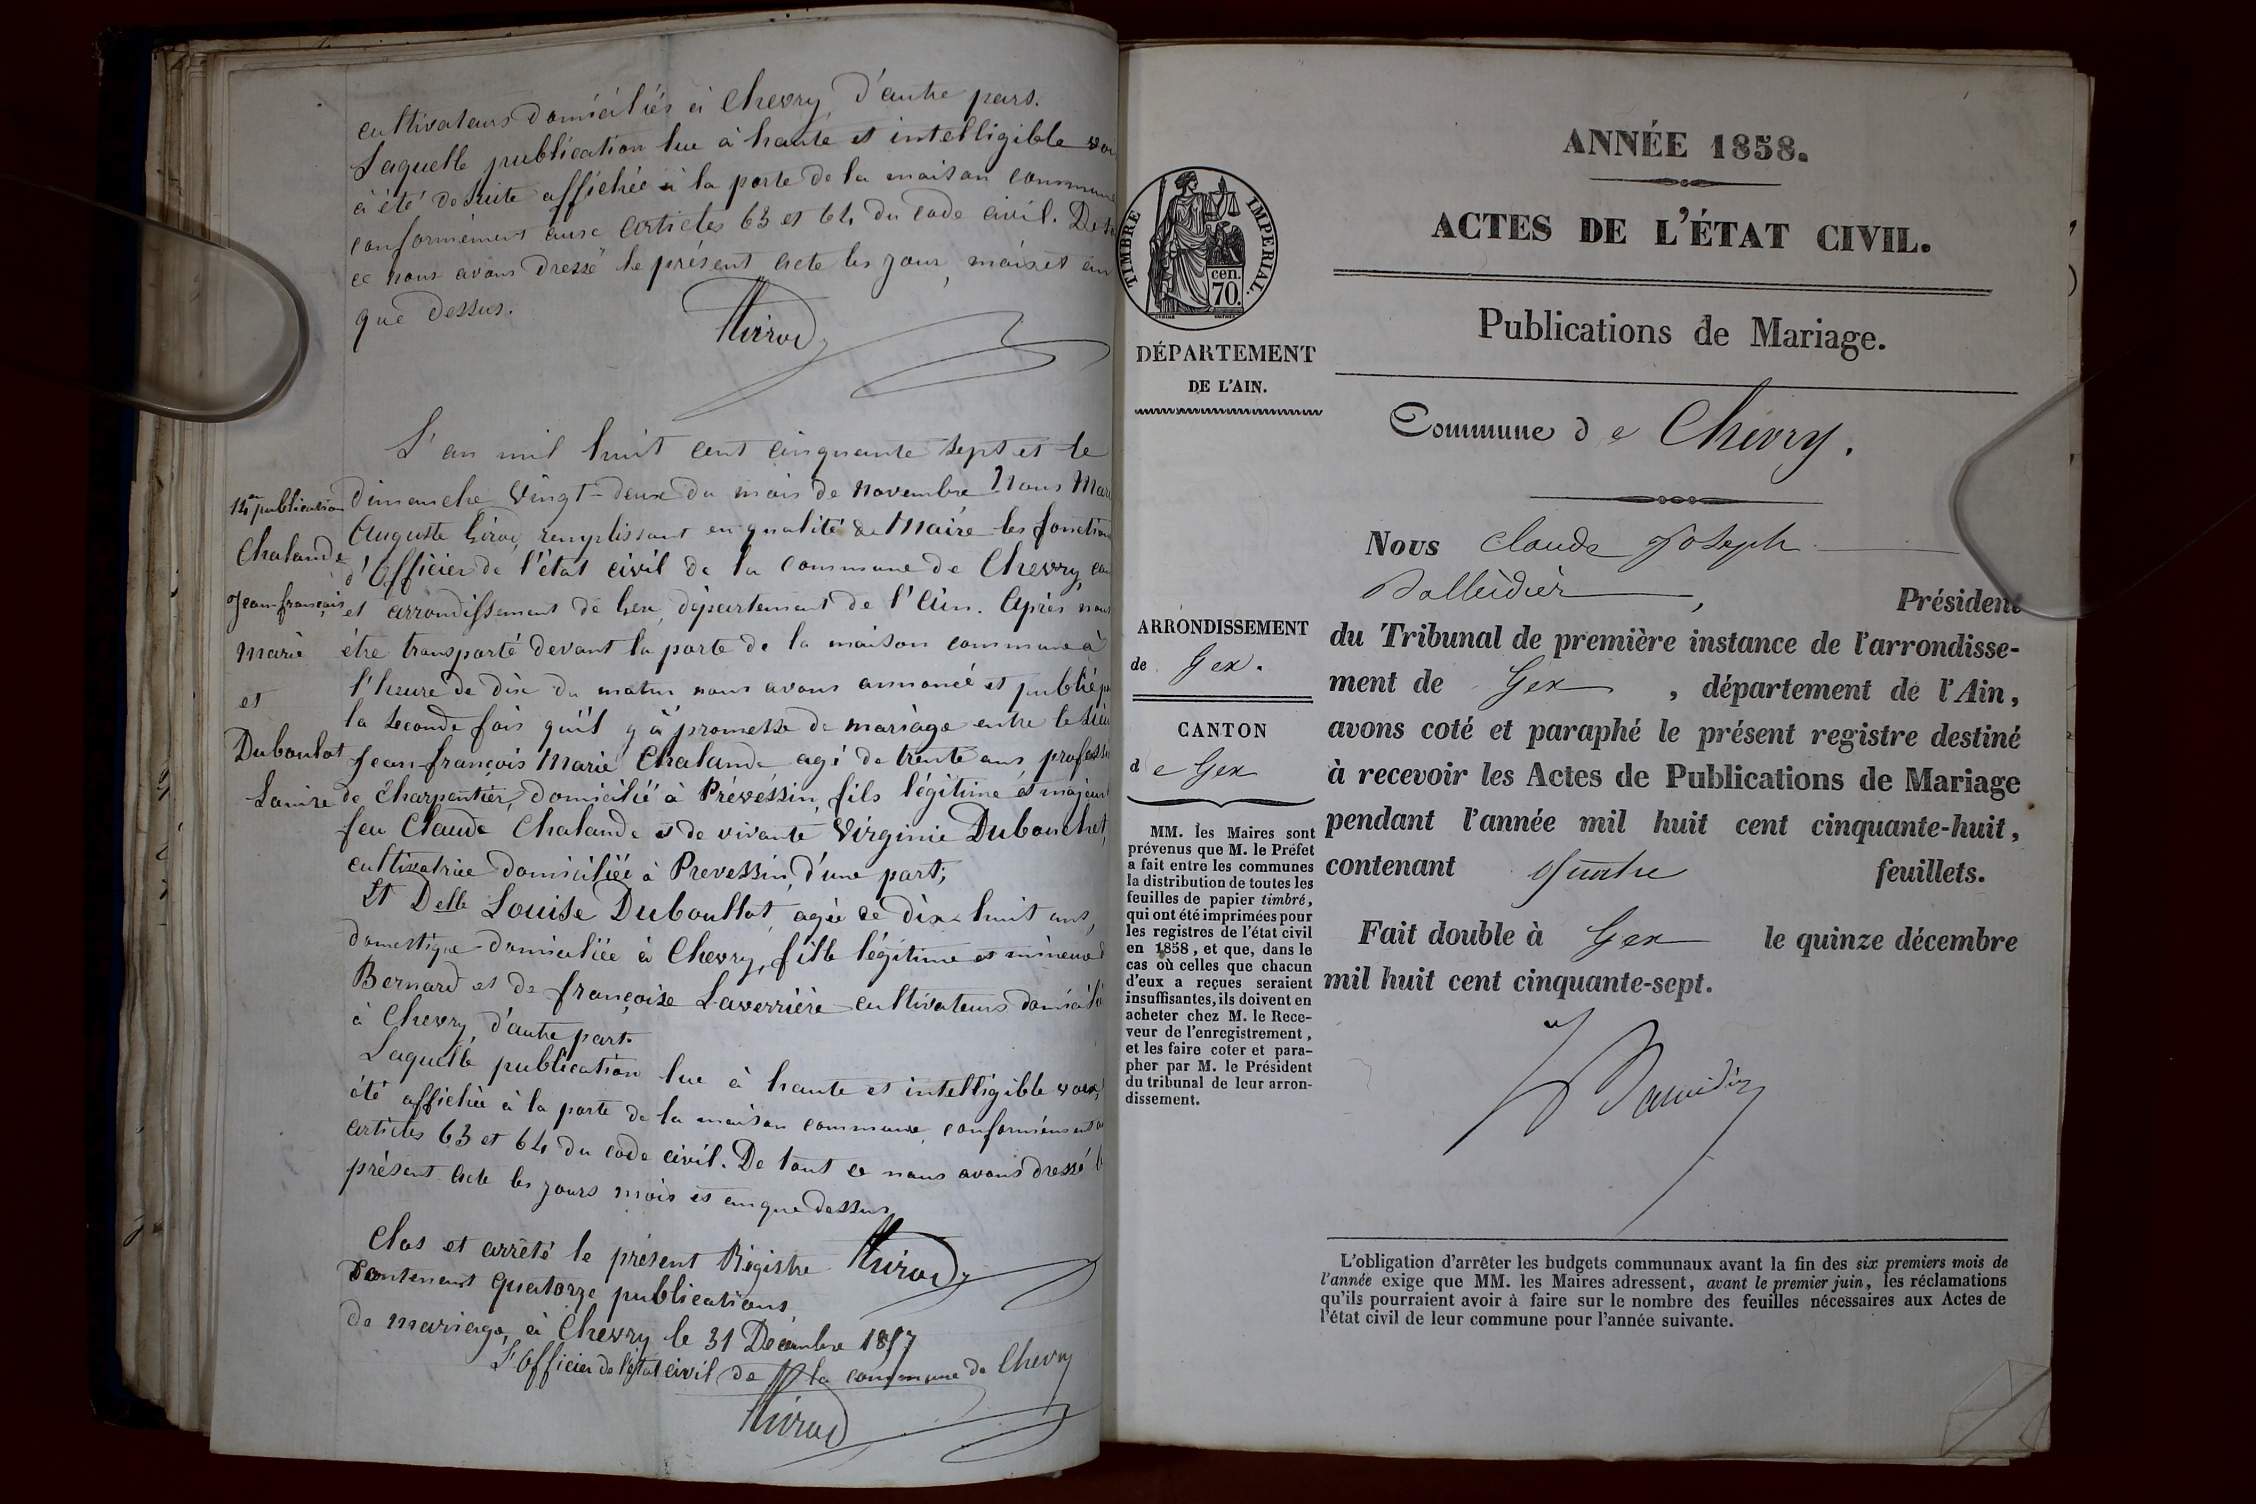 cultivateurs domiciliés à Chevry, d'autre part.
Laquelle publication lue à haute et intelligible voi
à été de suite affichée à la porte de la maison commune
conformément aux articles 63 et 64 du code civil. De t
ce nous avons dressé le présent acte les jour, mois et an
que dessus.
Girod
L'an mil huit cent cinquante sept et le
dimanche vingt-deux du mois de novembre Nous Mar
Auguste Girod, remplissant en qualité de Maire les fonction
d'officier de l'état civil de la commune de Chevry, can
et arrondissement de Gex, département de l'Ain. Après nous
être transporté devant la porte de la maison commune à
l'heure de dix du matin nous avons annoncé et publié p
la seconde fois qu'il y à promesse de mariage entre le sieu
Jean-françois Marie Chalande agé de trente ans profess
de Charpentier, domicilié à Prévessin, fils légitime et majeur
feu Claude Chalande et de vivante Virginie Dubouchet,
cultivatrice domiciliée à Prevessin, d'une part;
Et Delle Louise Duboullot, agée de dix-huit ans,
domestique domiciliée à Chevry, fille légitime et mineure
Bernard et de françoise Laverrière cultivateurs domicilié
à Chevry, d'autre part.
Laquelle publication lue à haute et intelligible voix, à
été affichée à la porte de la maison commune, conformément au
articles 63 et 64 du code civil. De tout ce nous avons dressé le
présent acte les jours mois et an que dessus.
Girod
14e publication
Chalande
Jean-françois
Marie
et
Duboulot
Louise
Clos et arrêté le présent Régistre
Contenant quatorze publications
de mariage, à Chevry le 31 Décembre 1857
L'officier de l'état civil de la commune de Chevry
Girod
ANNÉE 1858.
ACTES DE L'ÉTAT CIVIL.
Publications de Mariage.
Commune de Chevry.
TIMBRE IMPERIAL.
cen.
70.
DÉPARTEMENT
DE L'AIN.
ARRONDISSEMENT
de Gex.
CANTON
de Gex
MM. les Maires sont
prévenus que M. le Préfet
a fait entre les communes
la distribution de toutes les
feuilles de papier timbré,
qui ont été imprimées pour
les registres de l'état civil
en 1858, et que, dans le
cas où celles que chacun
d'eux a reçues seraient
insuffisantes, ils doivent en
acheter chez M. le Rece-
veur de l'enregistrement,
et les faire coter et para-
pher par M. le Président
du tribunal de leur arron-
dissement.
Nous Claude Joseph
Balleidier, Président
du Tribunal de première instance de l'arrondisse-
ment de Gex, département de l'Ain,
avons coté et paraphé le présent registre destiné
à recevoir les Actes de Publications de Mariage
pendant l'année mil huit cent cinquante-huit,
contenant Quatre feuillets.
Fait double à Gex le quinze décembre
mil huit cent cinquante-sept.
L'obligation d'arrêter les budgets communaux avant la fin des six premiers mois de
l'année exige que MM. les Maires adressent, avant le premier juin, les réclamations
qu'ils pourraient avoir à faire sur le nombre des feuilles nécessaires aux Actes de
l'état civil de leur commune pour l'année suivante.